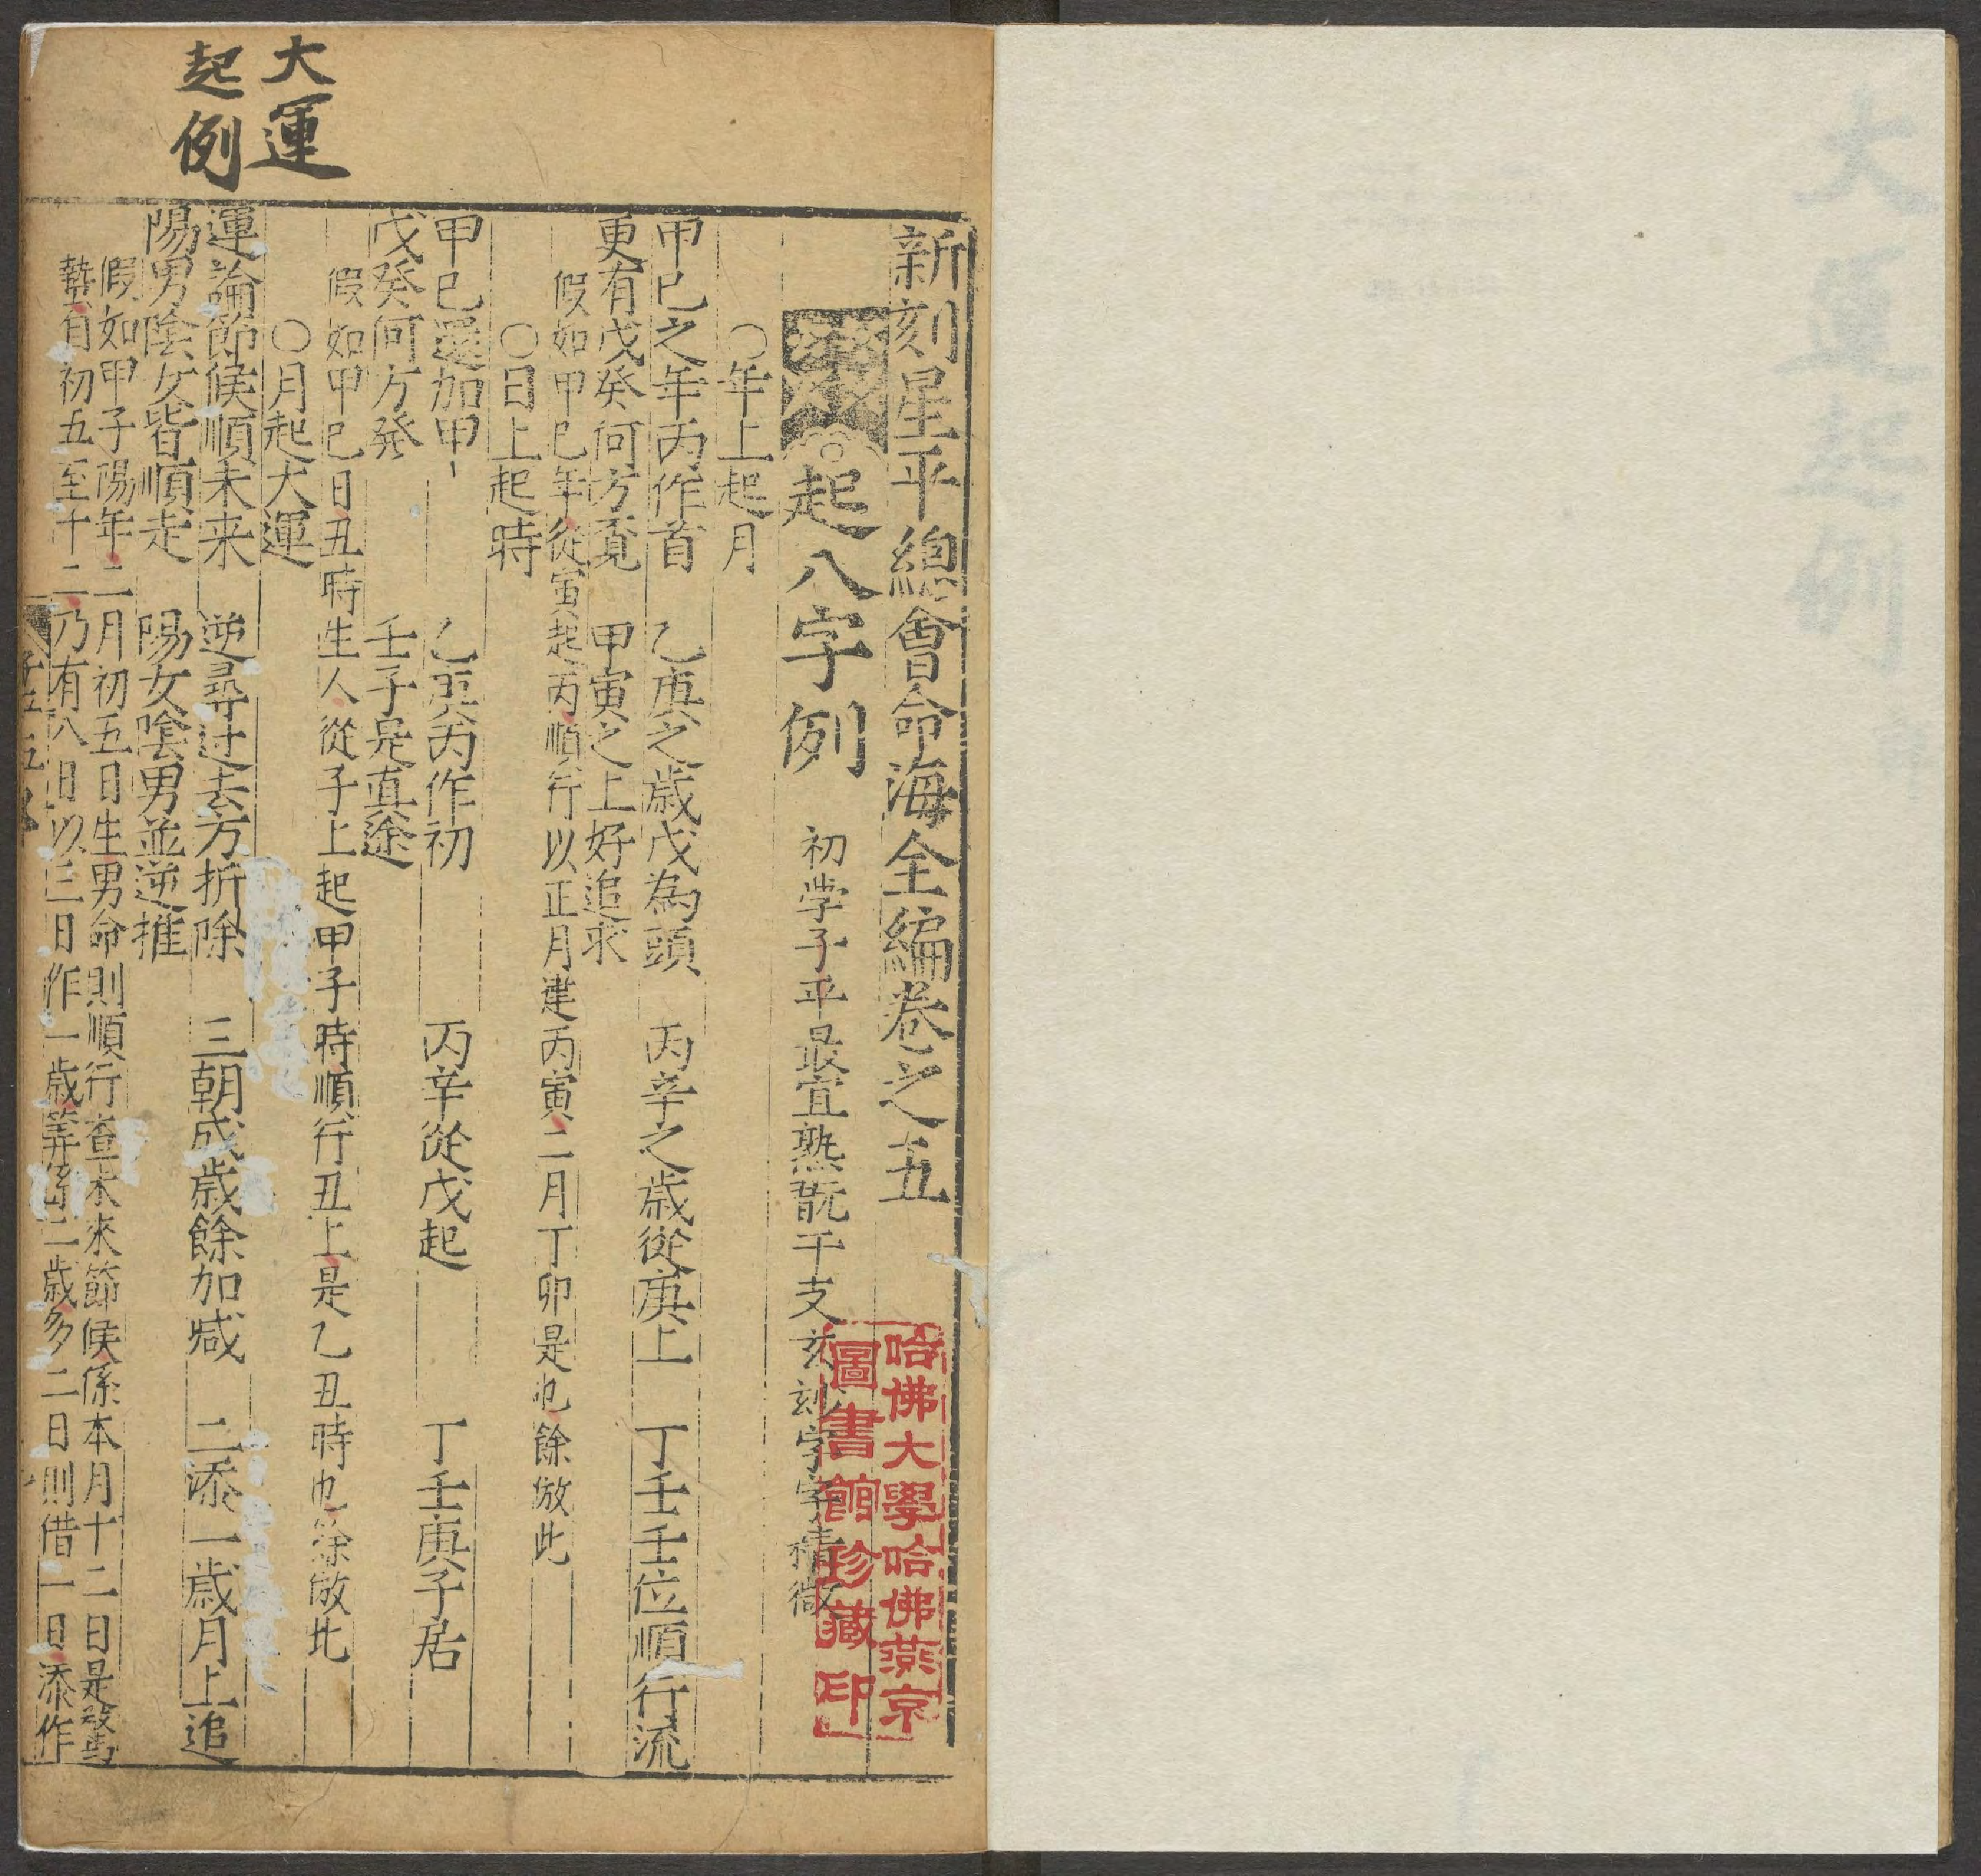 大運
起例
新刻星平總會命海全編卷之五
起八字例 初學子平最宜熟翫干支亥刻字字精微
哈佛大學哈佛燕京
圖書館珍藏印
〇年上起月
甲己之年丙作首 乙庚之歲戊為頭 丙辛之歲從庚上 丁壬壬位順行流
更有戊癸何方覓 甲寅之上好追求
假如甲己年從寅起丙順行以正月建丙寅二月丁卯是也餘倣此
〇日上起時
甲己還加甲 乙庚丙作初 丙辛從戊起 丁壬庚子居
戊癸何方發 壬子是真途
假如甲己日丑時生人從子上起甲子時順行丑上是乙丑時也餘倣此
〇月起大運
運論節候順未来 逆尋过去方折除 三朝成歲餘加減 二添一歲月上追
陽男陰女皆順走 陽女陰男並逆推
假如甲子陽年二月初五日生男命則順行查未來節候係本月十二日是驚
蟄自初五至十二乃有八日以三日作一歲筭係二歲多二日則借一日添作